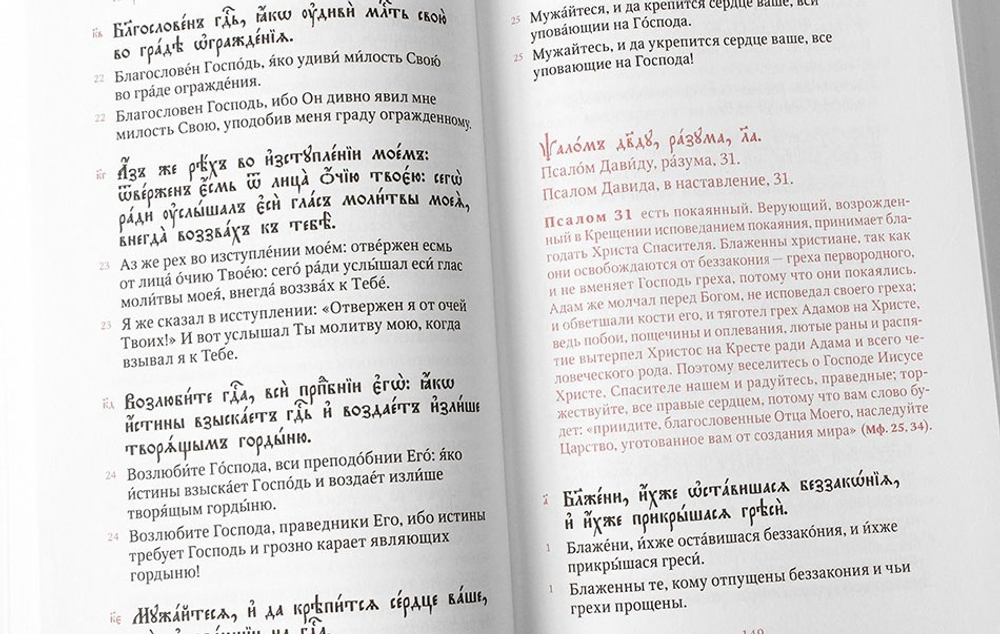 к҃в Бл҃гослове́нъ гдⷭ҇ь, ꙗ҆́кѡ ᲂу҆дивѝ млⷭ҇ть свою̀
во гра́дѣ ѡ҆гражде́нїѧ.
22 Благослове́н Госпо́дь, я́ко удиви́ ми́лость Свою́
во гра́де огражде́ния.
22 Благословен Господь, ибо Он дивно явил мне
милость Свою, уподобив меня граду огражденному.
к҃г А҆́зъ же рѣ́хъ во и҆зступле́нїи мое́мъ:
ѿве́рженъ є҆́смь ѿ лица̀ ѻ҆́чїю твоє́ю: сегѡ̀
ра́ди ᲂу҆слы́шалъ є҆сѝ гла́съ моли́твы моеѧ̀,
внегда̀ воззва́хъ къ тебѣ̀.
23 Аз же рех во изступле́нии мое́м: отве́ржен есмь
от лица́ о́чию Твое́ю: сего́ ра́ди услы́шал еси́ глас
моли́твы моея́, внегда́ воззва́х к Тебе́.
23 Я же сказал в исступлении: «Отвержен я от очей
Твоих!» И вот услышал Ты молитву мою, когда
взывал я к Тебе.
к҃д Возлюби́те гдⷭ҇а, всѝ прпⷣбнїи є҆гѡ̀: ꙗ҆́кѡ
и҆́стины взыска́етъ гдⷭ҇ь и҆ воздае́тъ и҆зли́ше
творѧ́щымъ горды́ню.
24 Возлюби́те Го́спода, вси преподо́бнии Его́: я́ко
и́стины взыска́ет Госпо́дь и воздае́т изли́ше
творя́щым горды́ню.
24 Возлюбите Господа, праведники Его, ибо истины
требует Господь и грозно карает являющих
гордыню!
к҃є Мꙋжа́йтесѧ, и҆ да крѣпи́тсѧ се́рдце ва́ше,
на гдⷭ҇а.
25 Мужа́йтеся, и да крепи́тся се́рдце ва́ше, вси
упова́ющии на Го́спода.
25 Мужайтесь, и да укрепится сердце ваше, все
уповающие на Господа!
Ѱало́мъ дв҃дꙋ, ра́зꙋма, л҃а.
Псало́м Дави́ду, ра́зума, 31.
Псалом Давида, в наставление, 31.
Псалом 31 есть покаянный. Верующий, возрожден-
ный в Крещении исповеданием покаяния, принимает бла-
годать Христа Спасителя. Блаженны христиане, так как
они освобождаются от беззакония — греха первородного,
и не вменяет Господь греха, потому что они покаялись.
Адам же молчал перед Богом, не исповедал своего греха;
и обветшали кости его, и тяготел грех Адамов на Христе,
ведь побои, пощечины и оплевания, лютые раны и распя-
тие вытерпел Христос на Кресте ради Адама и всего че-
ловеческого рода. Поэтому веселитесь о Господе Иисусе
Христе, Спасителе нашем и радуйтесь, праведные; тор-
жествуйте, все правые сердцем, потому что вам слово бу-
дет: «приидите, благословенные Отца Моего, наследуйте
Царство, уготованное вам от создания мира» (Мф. 25, 34).
а҃ Бл҃же́ни, и҆̀хже ѡ҆ста́вишасѧ беззакѡ́нїѧ,
и҆ и҆̀хже прикры́шасѧ грѣсѝ.
1 Блаже́ни, и́хже оста́вишася беззако́ния, и и́хже
прикры́шася греси́.
1 Блаженны те, кому отпущены беззакония и чьи
грехи прощены.
149